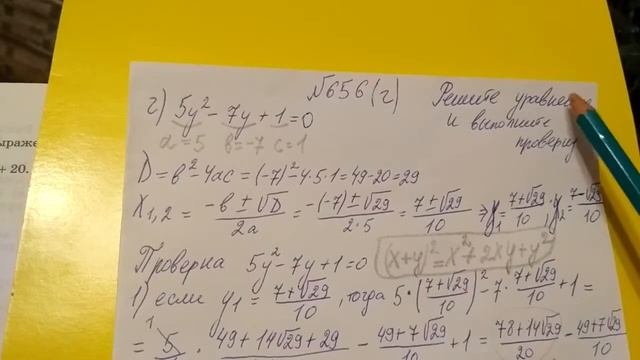 №656(г)
Решите
и выполните
проверку
г) 5y²-7y+1=0
a=5 в=-7 c=1
ыраже
+ 20.
D=в²-4ac=(-7)²-4·5·1=49-20=29
X₁,₂ = (-в±√D)/2a = (-(-7)±√29)/(2·5) = (7±√29)/10 ⇒ y₁=(7+√29)/10; y₂=(7-√29)/10
Проверка 5y²-7y+1=0 (x+y)²=x²+2xy+y²
1) если y₁ = (7+√29)/10, тогда 5·((7+√29)/10)²-7·(7+√29)/10+1=
= 5 · 49+14√29+29 - (49+7√29)/10 +1 = (78+14√29)/20 - 49+7√29